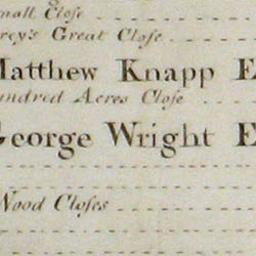 mall Close
rcy's Great Close
Matthew Knapp E
undred Acres Close
George Wright E
Wood Closes